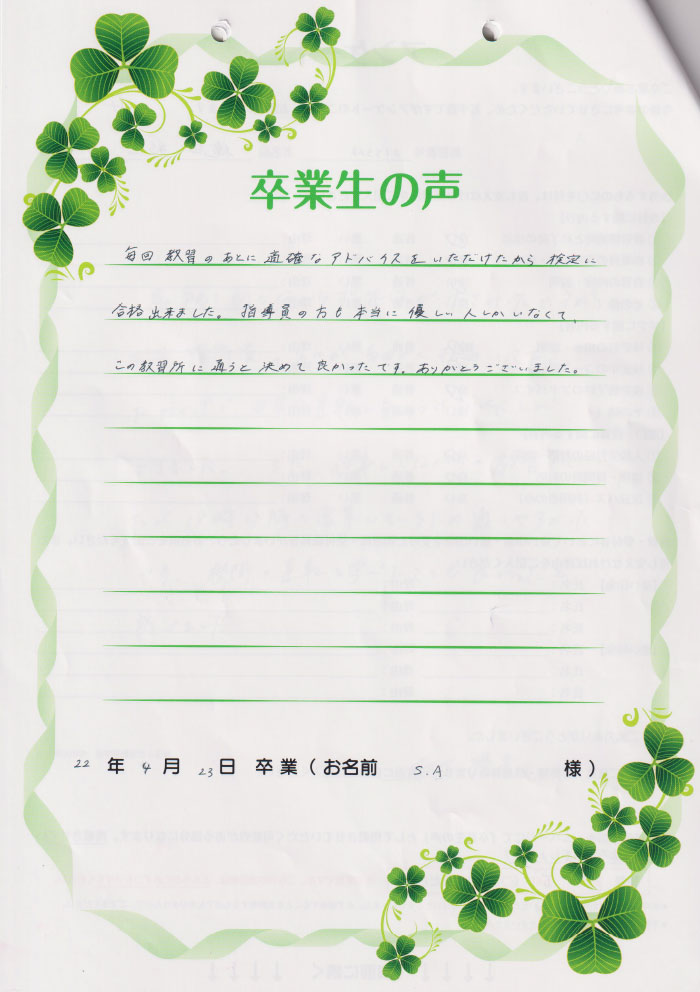 卒業生の声
毎回 教習のあとに 適確なアドバイスを いただけたから 検定に
合格出来ました。 指導員の方も 本当に 優しい人しかいなくて、
この教習所に 通うと 決めて 良かったです。ありがとうございました。
22 年 4 月 23 日 卒業(お名前 S.A 様)